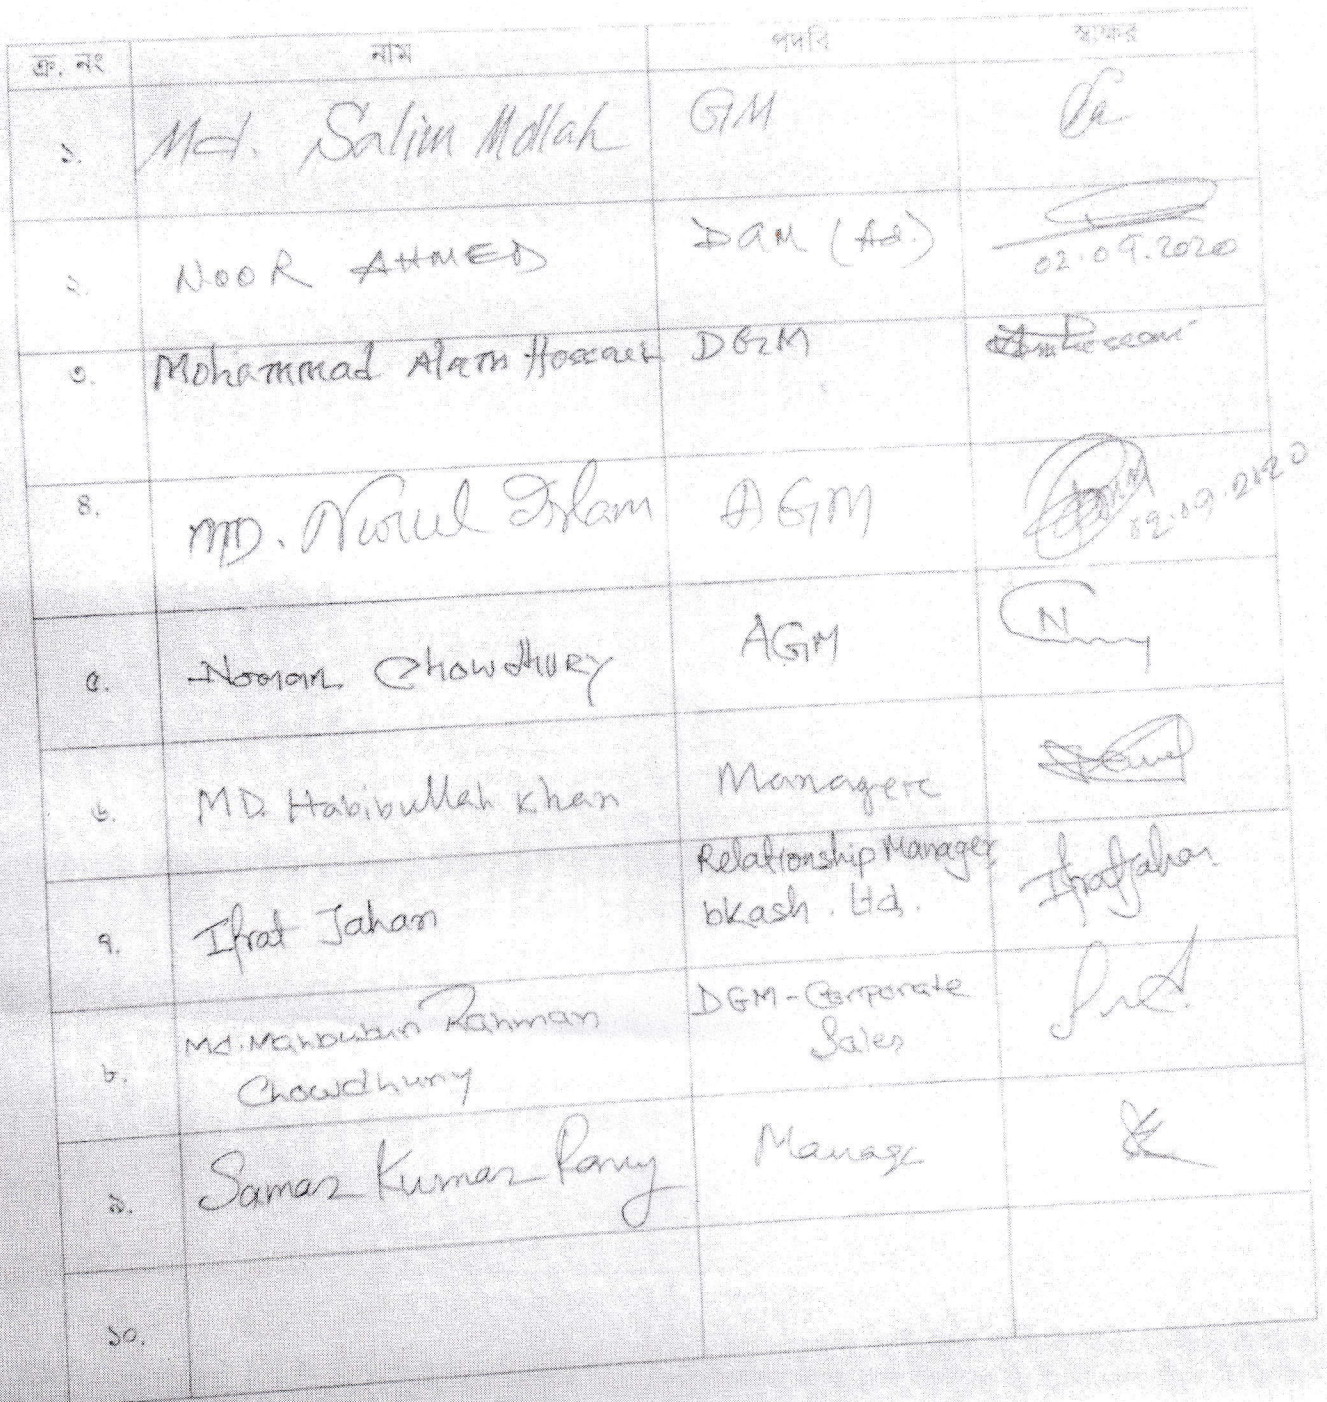 ক্র. নং নাম পদবি স্বাক্ষর
১. Md. Salim Mollah GM
২. NOOR AHMED DGM (Ad.) 02.09.2020
৩. Mohammad Alam Hossain DGM
৪. MD. Nurul Islam AGM 02.09.2020
৫. Noman Chowdhury AGM N
৬. MD. Habibullah Khan Manager
৭. Ifrat Jahan Relationship Manager Ifratjahan
bkash. Ltd.
৮. Md. Mahbubur Rahman DGM-Corporate
Chowdhury Sales
৯. Samar Kumar Manager
১০.